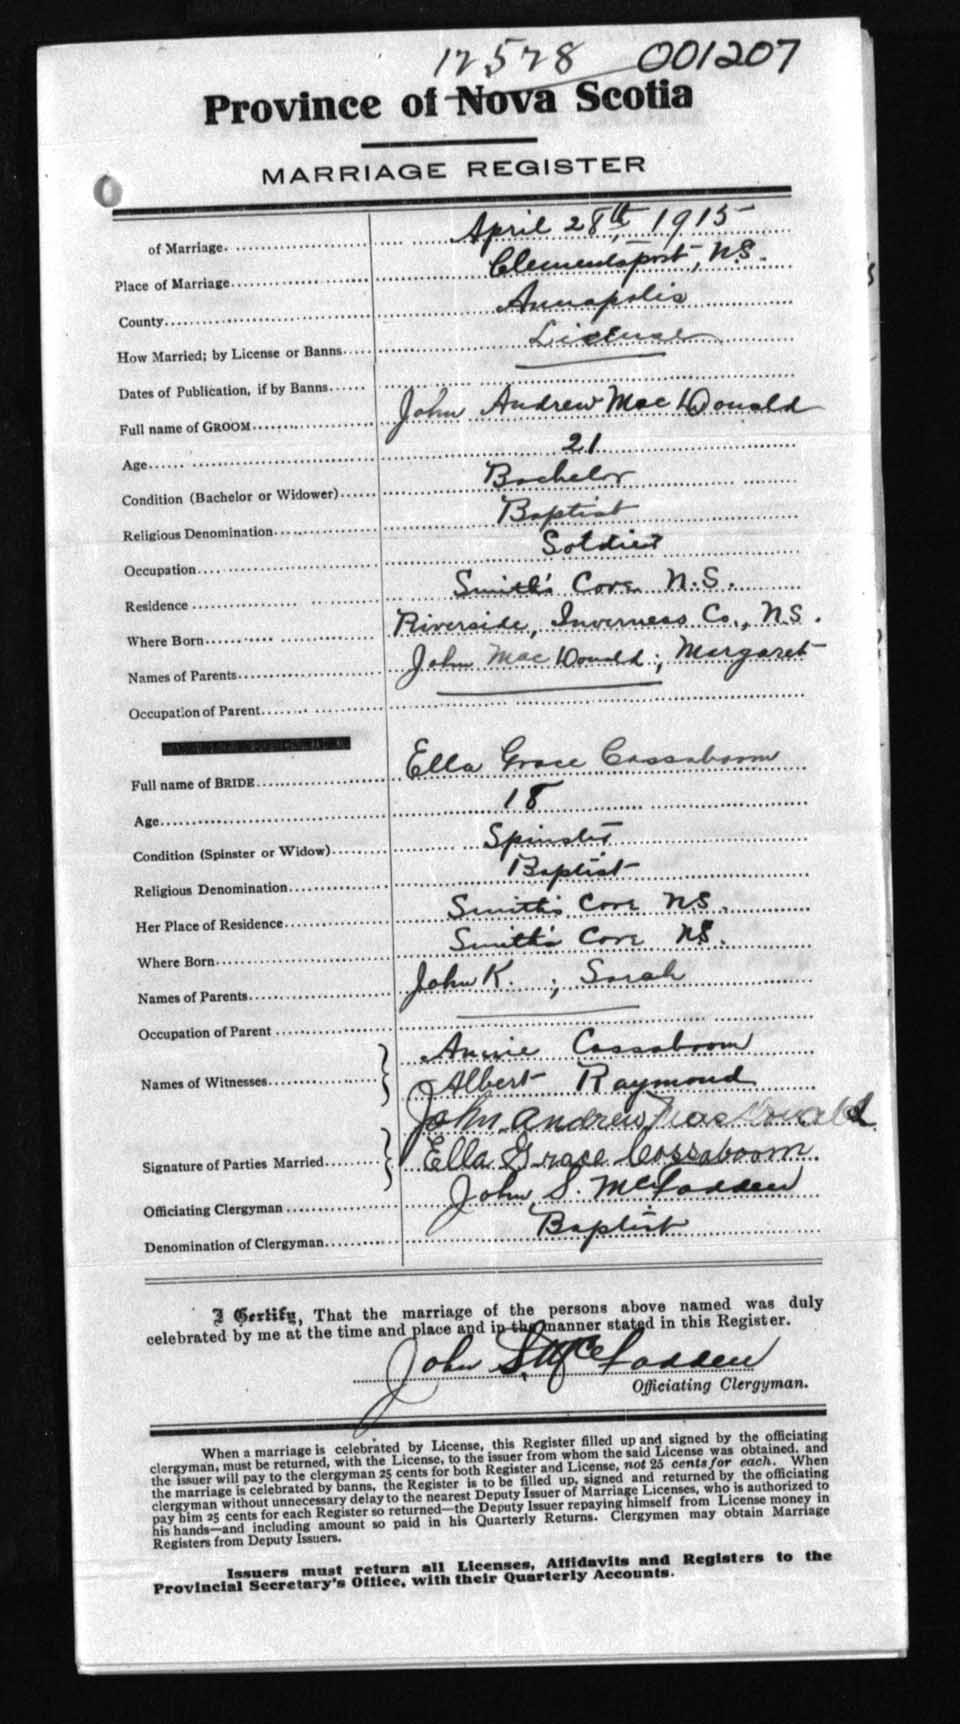 17578 001207
Province of Nova Scotia
MARRIAGE REGISTER
of Marriage. April 28th, 1915
Place of Marriage Clementsport, N.S.
County Annapolis
How Married; by License or Banns License
Dates of Publication, if by Banns
Full name of GROOM John Andrew MacDonald
Age 21
Condition (Bachelor or Widower) Bachelor
Religious Denomination Baptist
Occupation Soldier
Residence Smith's Cove N.S.
Where Born Riverside, Inverness Co., N.S.
Names of Parents John MacDonald; Margaret
Occupation of Parent
Full name of BRIDE Ella Grace Cossaboom
Age 18
Condition (Spinster or Widow) Spinster
Religious Denomination Baptist
Her Place of Residence Smith's Cove N.S.
Where Born Smith's Cove N.S.
Names of Parents John K. ; Sarah
Occupation of Parent
Names of Witnesses Annie Cossaboom
Albert Raymond
Signature of Parties Married John Andrew MacDonald
Ella Grace Cossaboom
Officiating Clergyman John S. McFadden
Denomination of Clergyman Baptist
I Certify, That the marriage of the persons above named was duly
celebrated by me at the time and place and in the manner stated in this Register.
John S. McFadden
Officiating Clergyman.
When a marriage is celebrated by License, this Register filled up and signed by the officiating
clergyman, must be returned, with the License, to the issuer from whom the said License was obtained, and
the issuer will pay to the clergyman 25 cents for both Register and License, not 25 cents for each. When
the marriage is celebrated by banns, the Register is to be filled up, signed and returned by the officiating
clergyman without unnecessary delay to the nearest Deputy Issuer of Marriage Licenses, who is authorized to
pay him 25 cents for each Register so returned—the Deputy Issuer repaying himself from License money in
his hands—and including amount so paid in his Quarterly Returns. Clergymen may obtain Marriage
Registers from Deputy Issuers.
Issuers must return all Licenses, Affidavits and Registers to the
Provincial Secretary's Office, with their Quarterly Accounts.